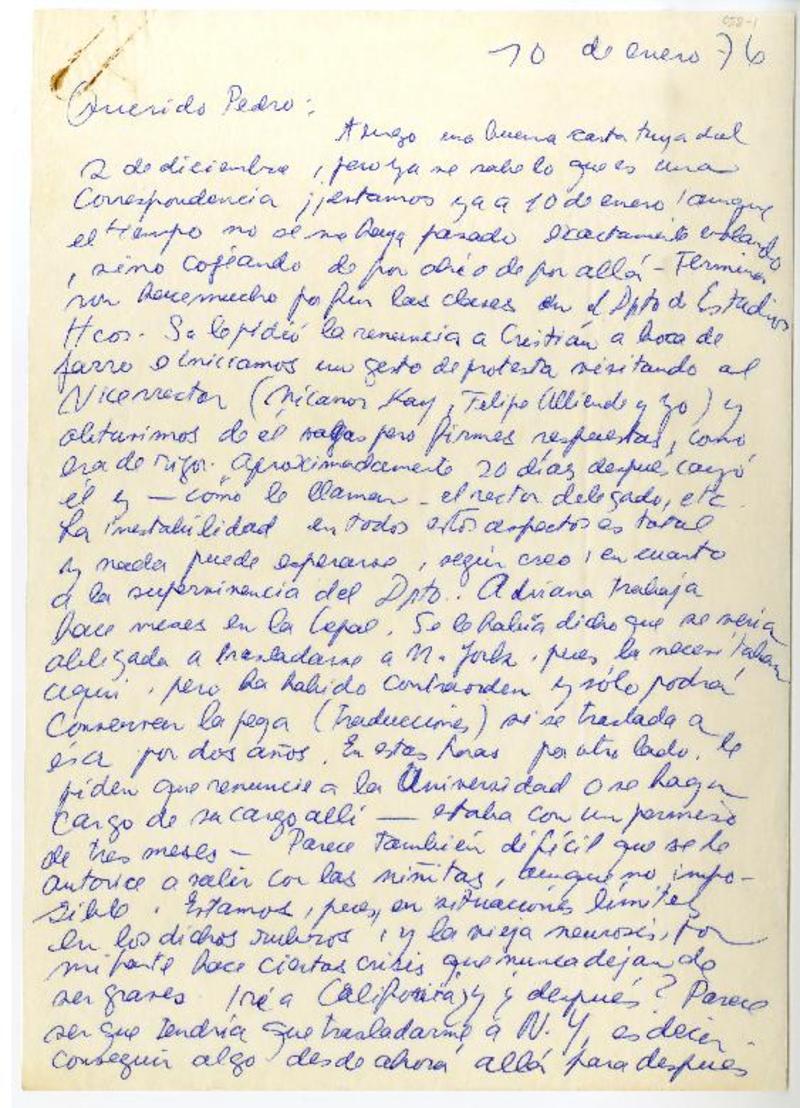 058-1
10 de enero 76
Querido Pedro:
Tengo una buena carta tuya del
2 de diciembre, pero ya se sabe lo que es una
correspondencia ¡¡estamos ya a 10 de enero! aunque
el tiempo no se nos haya pasado exactamente volando
, sino cojeando de por aquí o de por allá - Termina-
ron hace mucho por fin las clases en el Dpto de Estudios
Hcos. Se le pidió la renuncia a Cristián a boca de
jarro e iniciamos un gesto de protesta visitando al
Vicerrector (Nicanor, Kay, Felipe Alliende y yo) y
obtuvimos de él vagas pero firmes respuestas, como
era de rigor. Aproximadamente 20 días después cayó
él y — cómo le llaman - el rector delegado, etc.
La inestabilidad en todos estos aspectos es total
y nada puede esperarse, según creo, en cuanto
a la supervivencia del Dpto. Adriana trabaja
hace meses en la Cepal. Se le había dicho que se vería
obligada a trasladarse a N. York, pues la necesitaban
aquí, pero ha habido contraorden y sólo podrá
conservar la pega (traducciones) si se traslada a
ésa por dos años. En estas horas por otro lado, le
piden que renuncie a la Universidad o se haga
cargo de su cargo allí — estaba con un permiso
de tres meses - Parece también difícil que se le
autorice a salir con las niñitas, aunque no impo-
sible. Estamos, pues, en situaciones límites
en los dichos rubros, y la vieja neurosis, por
mi parte hace ciertas crisis que nunca dejan de
ser graves. Iré a California y ¿después? Parece
ser que tendría que trasladarme a N.Y, es decir
conseguir algo desde ahora allá para después